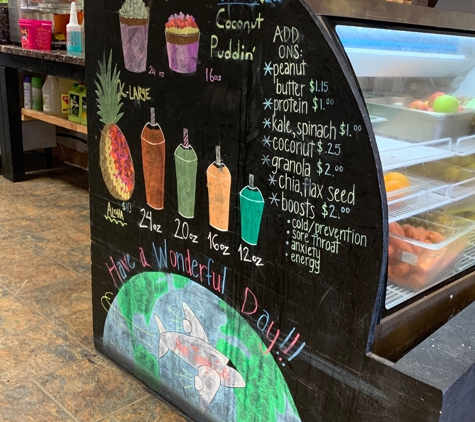 Coconut
Puddin'
24 oz
16oz
X-LARGE
$10
Aloha
24oz
20 oz
16oz
12oz
ADD
ONS:
*peanut
butter $1.15
*protein $1.00
*kale, spinach $1.00
*coconut $.25
*granola $2.00
*chia, flax seed
*boosts $2.00
• cold/prevention
• sore throat
• anxiety
• energy
Have a Wonderful Day!!!